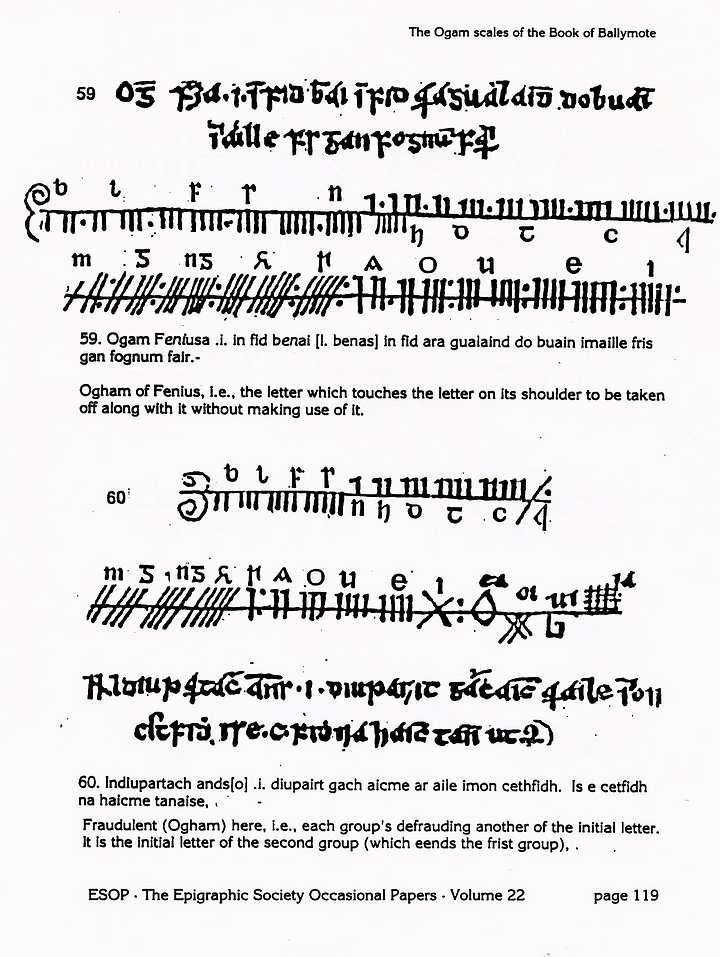 The Ogam scales of the Book of Ballymote
59
b l f r n
h d t c q
m g ng z r a o u e i
59. Ogam Feniusa .i. in fid benai [l. benas] in fid ara gualaind do buain imaille fris
gan fognum fair.-
Ogham of Fenius, i.e., the letter which touches the letter on its shoulder to be taken
off along with it without making use of it.
60
b l f r
n h d t c q
m g ng z r a o u e i ea oi ui ia
60. Indiupartach ands[o] .i. diupairt gach aicme ar aile imon cethfidh. Is e cetfidh
na haicme tanaise,
Fraudulent (Ogham) here, i.e., each group's defrauding another of the initial letter.
It is the initial letter of the second group (which eends the frist group), .
ESOP · The Epigraphic Society Occasional Papers · Volume 22 page 119